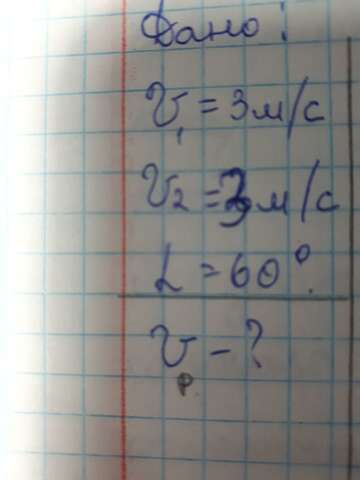 Дано:
V₁ = 3 м/с
V₂ = 3 м/с
L = 60°.
V - ?
р.